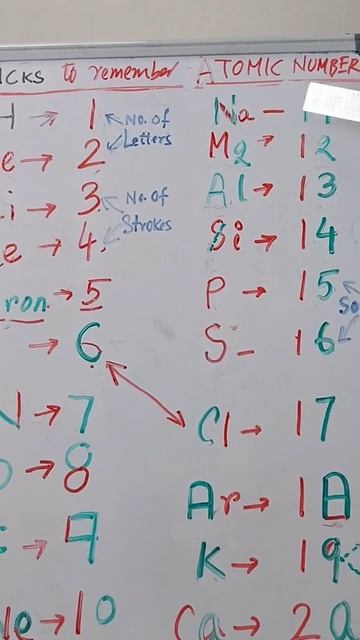 ICKS to remember ATOMIC NUMBER
H → 1 No. of Letters
e → 2
i → 3 No. of Strokes
e → 4
ron → 5
→ 6
N → 7
O → 8
→ 9
Ne → 10
Na —
Mg → 12
Al → 13
Si → 14
P → 15
So
S — 16
Cl → 17
Ar → 18
K → 19
Ca → 20